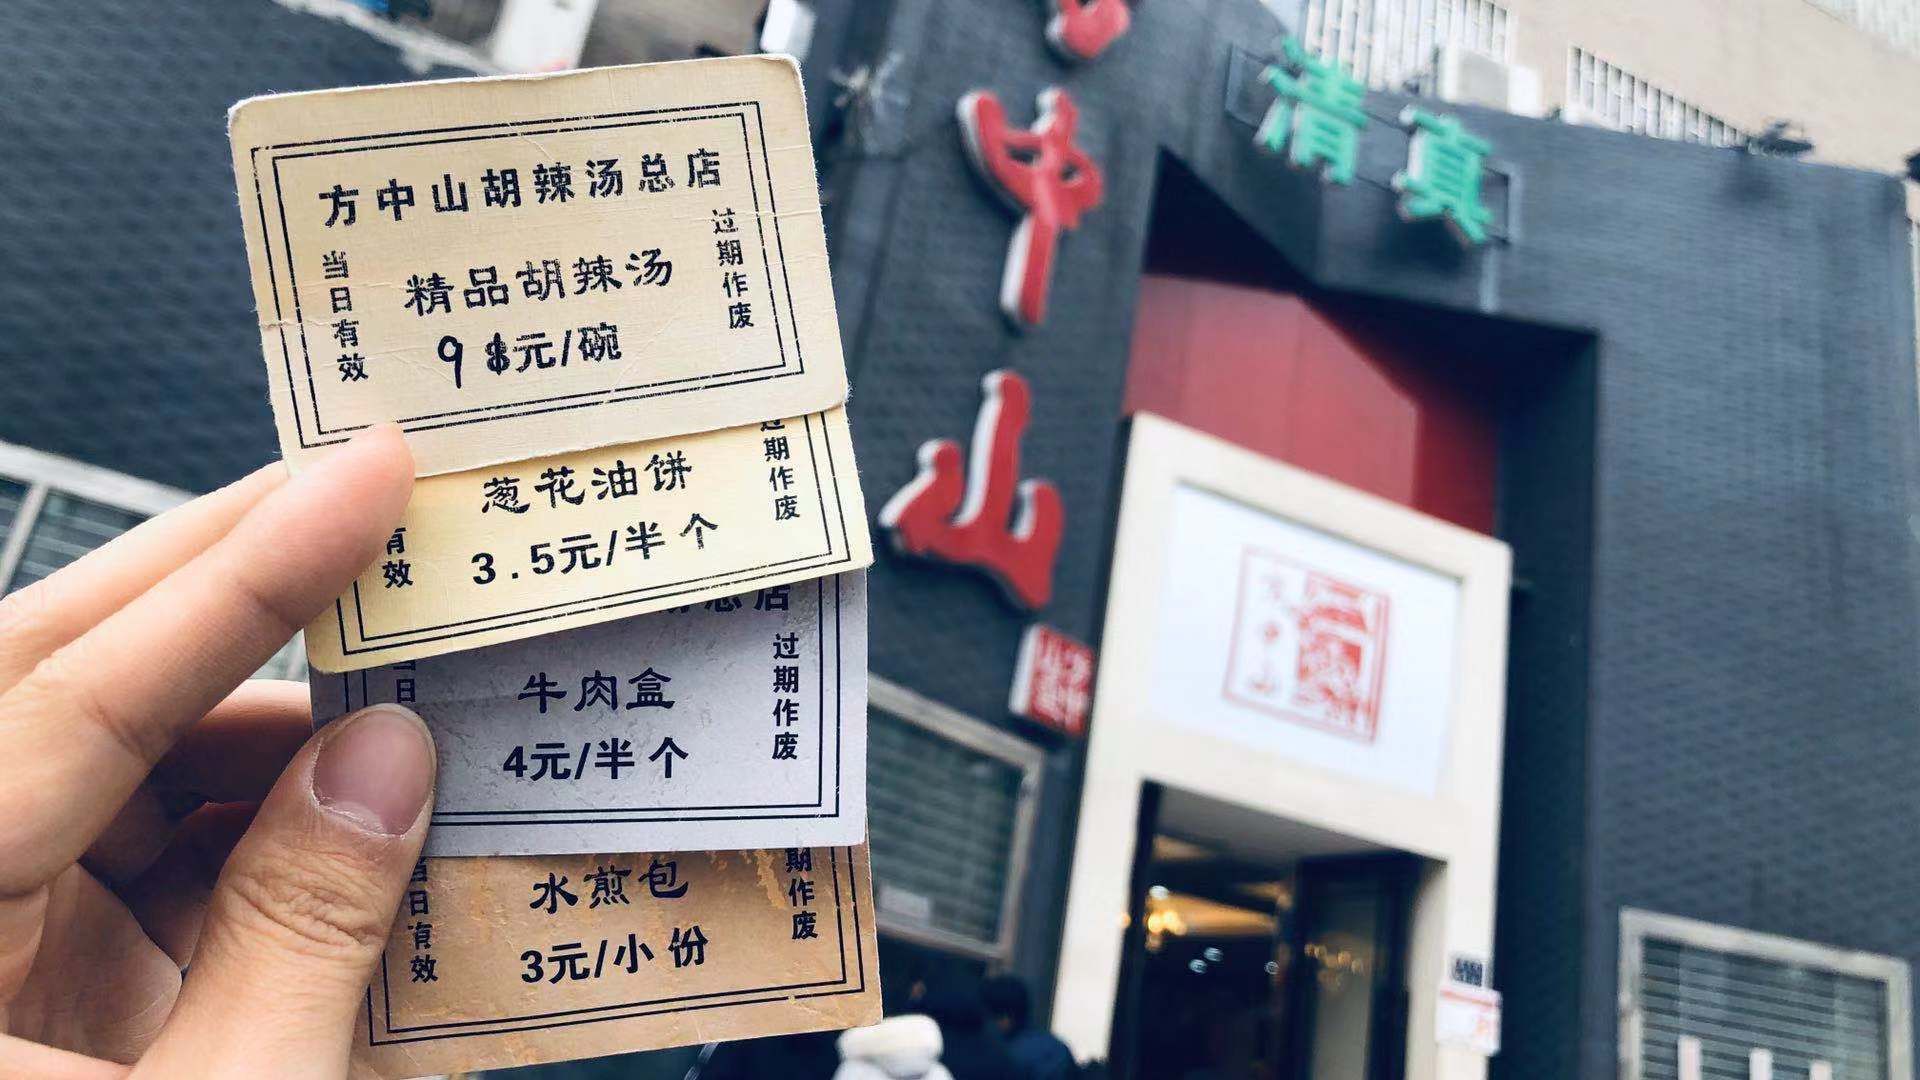 方中山胡辣汤总店
当日有效
精品胡辣汤
过期作废
9 8元/碗
葱花油饼
过期作废
有效
3.5元/半个
总店
当日
牛肉盒
过期作废
4元/半个
水煎包
期作废
当日有效
3元/小份
中山
清真
方中山